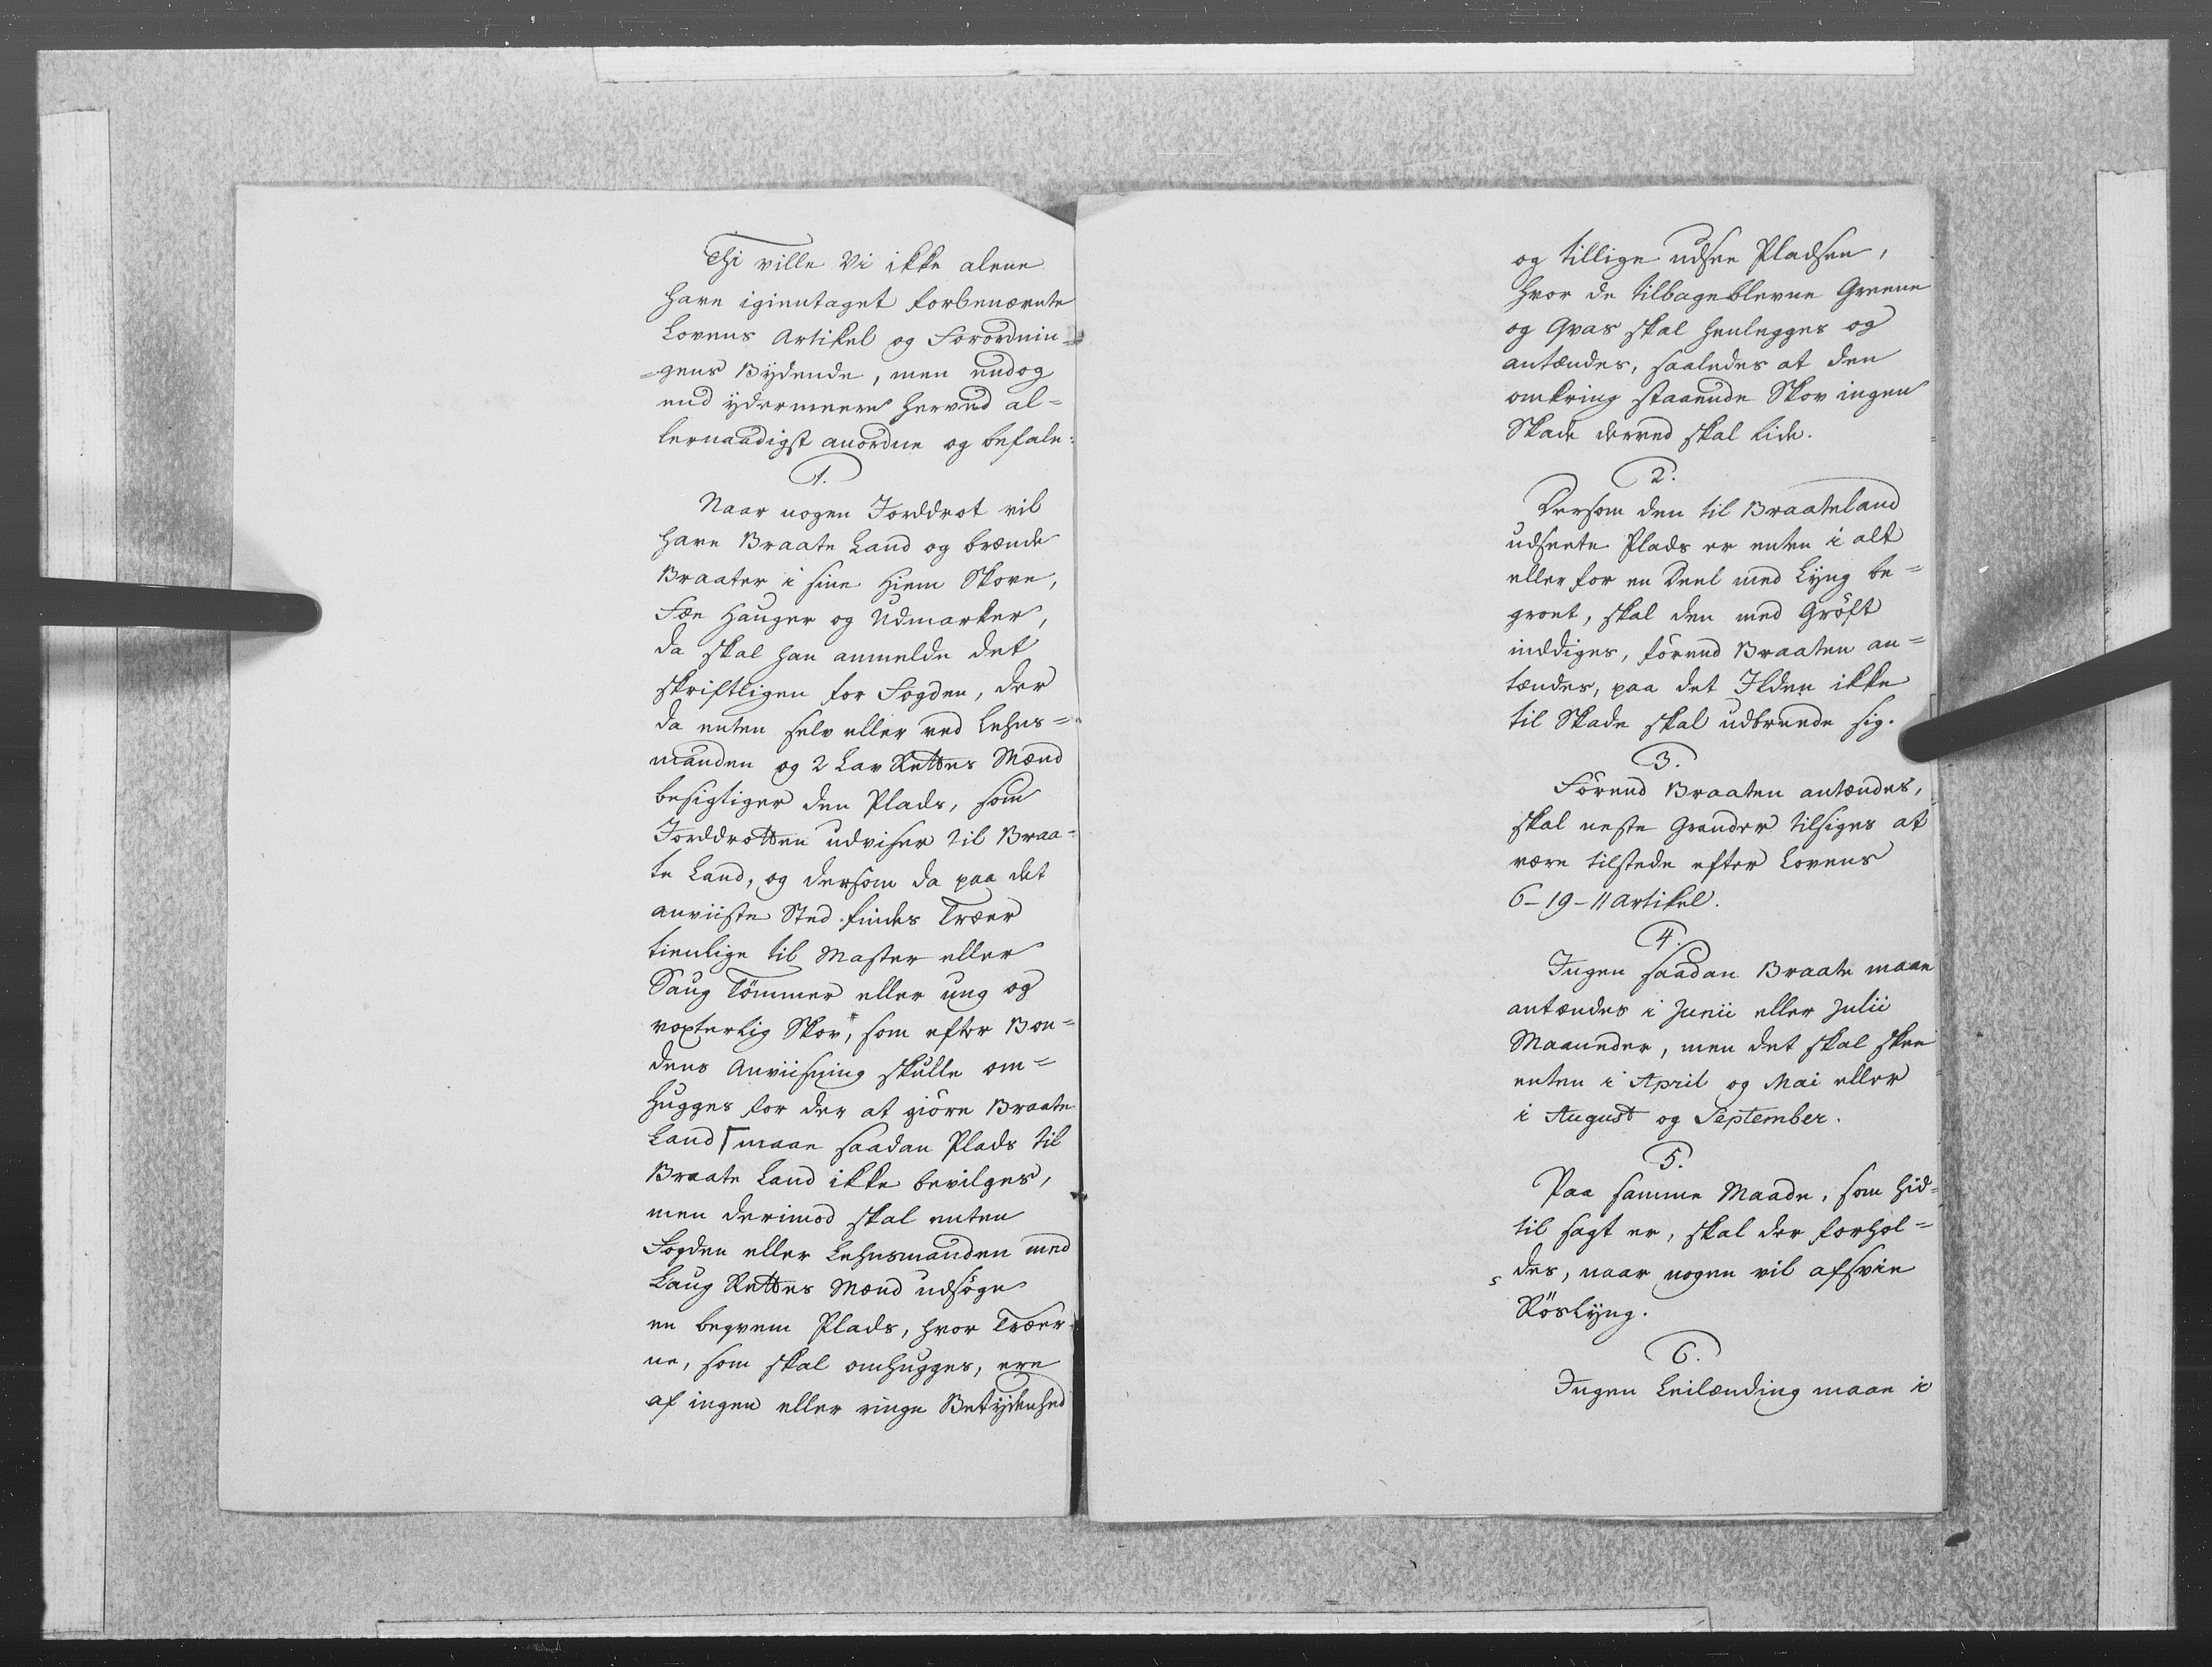 Thi ville Vi ikke alene
have igientaget forbenævnte
Lovens Artikel og Forordnin=
=gens Bydende, men endog
end ydermeere herved al=
lernaadigst anordne og befale:
1.
Naar nogen Jorddrot vil
have Braate Land og brænde
Braater i sine Hiem Skove,
Fæe Hauger og Udmarker,
da skal han anmelde det
skriftligen for Fogden, der
da enten selv eller ved Lehns=
manden og 2 Lav Rettes Mænd
besigtiger den Plads, som
Jorddrotten udviser til Braa=
te Land, og dersom da paa det
anviiste Sted findes Træer
tienlige til Master eller
Saug Tömmer eller ung og
voxterlig Skov, som efter Bon=
dens Anviisning skulle om=
hugges for der at giöre Braate
Land maae saadan Plads til
Braate Land ikke bevilges,
men derimod skal enten
Fogden eller Lehnsmanden med
Laug Rettes Mænd udsöge
en beqvem Plads, hvor Træer
ne, som skal omhugges, ere
af ingen eller ringe Betydenhed
og tillige udsee Pladsen,
hvor de tilbageblevne Greene
og Qvas skal henlegges og
antændes, saaledes at den
omkring staaende Skov ingen
Skade derved skal lide.
2.
Dersom den til Braateland
udseete Plads er enten i alt
eller for en Deel med Lyng be=
groet, skal den med Gröft
inddiges, förend Braaten an=
tændes, paa det Ilden ikke
til Skade skal udbrede sig.
3.
Förend Braaten antændes,
skal neste Grander tilsiges at
være tilstede efter Lovens
6-19-11 Artikel.
4.
Ingen saadan Braate maae
antændes i Junii eller Julii
Maaneder, men det skal skee
enten i April og Mai eller
i August og September.
5.
Paa samme Maade, som hid=
til sagt er, skal der forhol=
des, naar nogen vil afsvie
Röslyng.
6.
Ingen Leilænding maae i